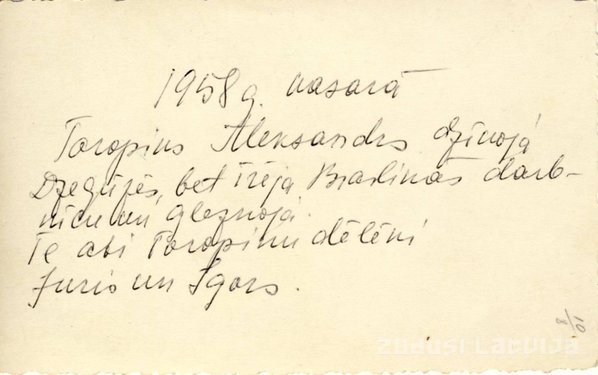 1958 g. vasarā
Toropins Aleksandrs dzīvojā
Dzegūzēs, bet īrēja Braslinas darb-
nicu un gleznojā.
Te abi Toropinu dēlēni
Juris un Igors.
8/01
zudusī Latvija